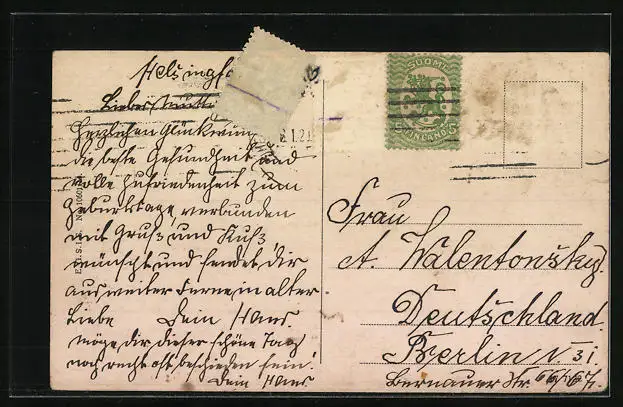 Helsingf
Liebe Mutti
Herzlichen Glückwun
die beste Gesundheit und
volle Zufriedenheit zum
Geburtstage, verbunden
mit Gruß und Kuß
wünscht und sendet dir
aus weiter Ferne in alter
Liebe Dein Hans.
möge dir dieser schöne Tag
noch recht oft beschieden sein!
Dein Hans
SUOMI
FINLAND
Frau
A. Walentowsky.
Deutschland.
Berlin
31
Bernauer Str 66/67.